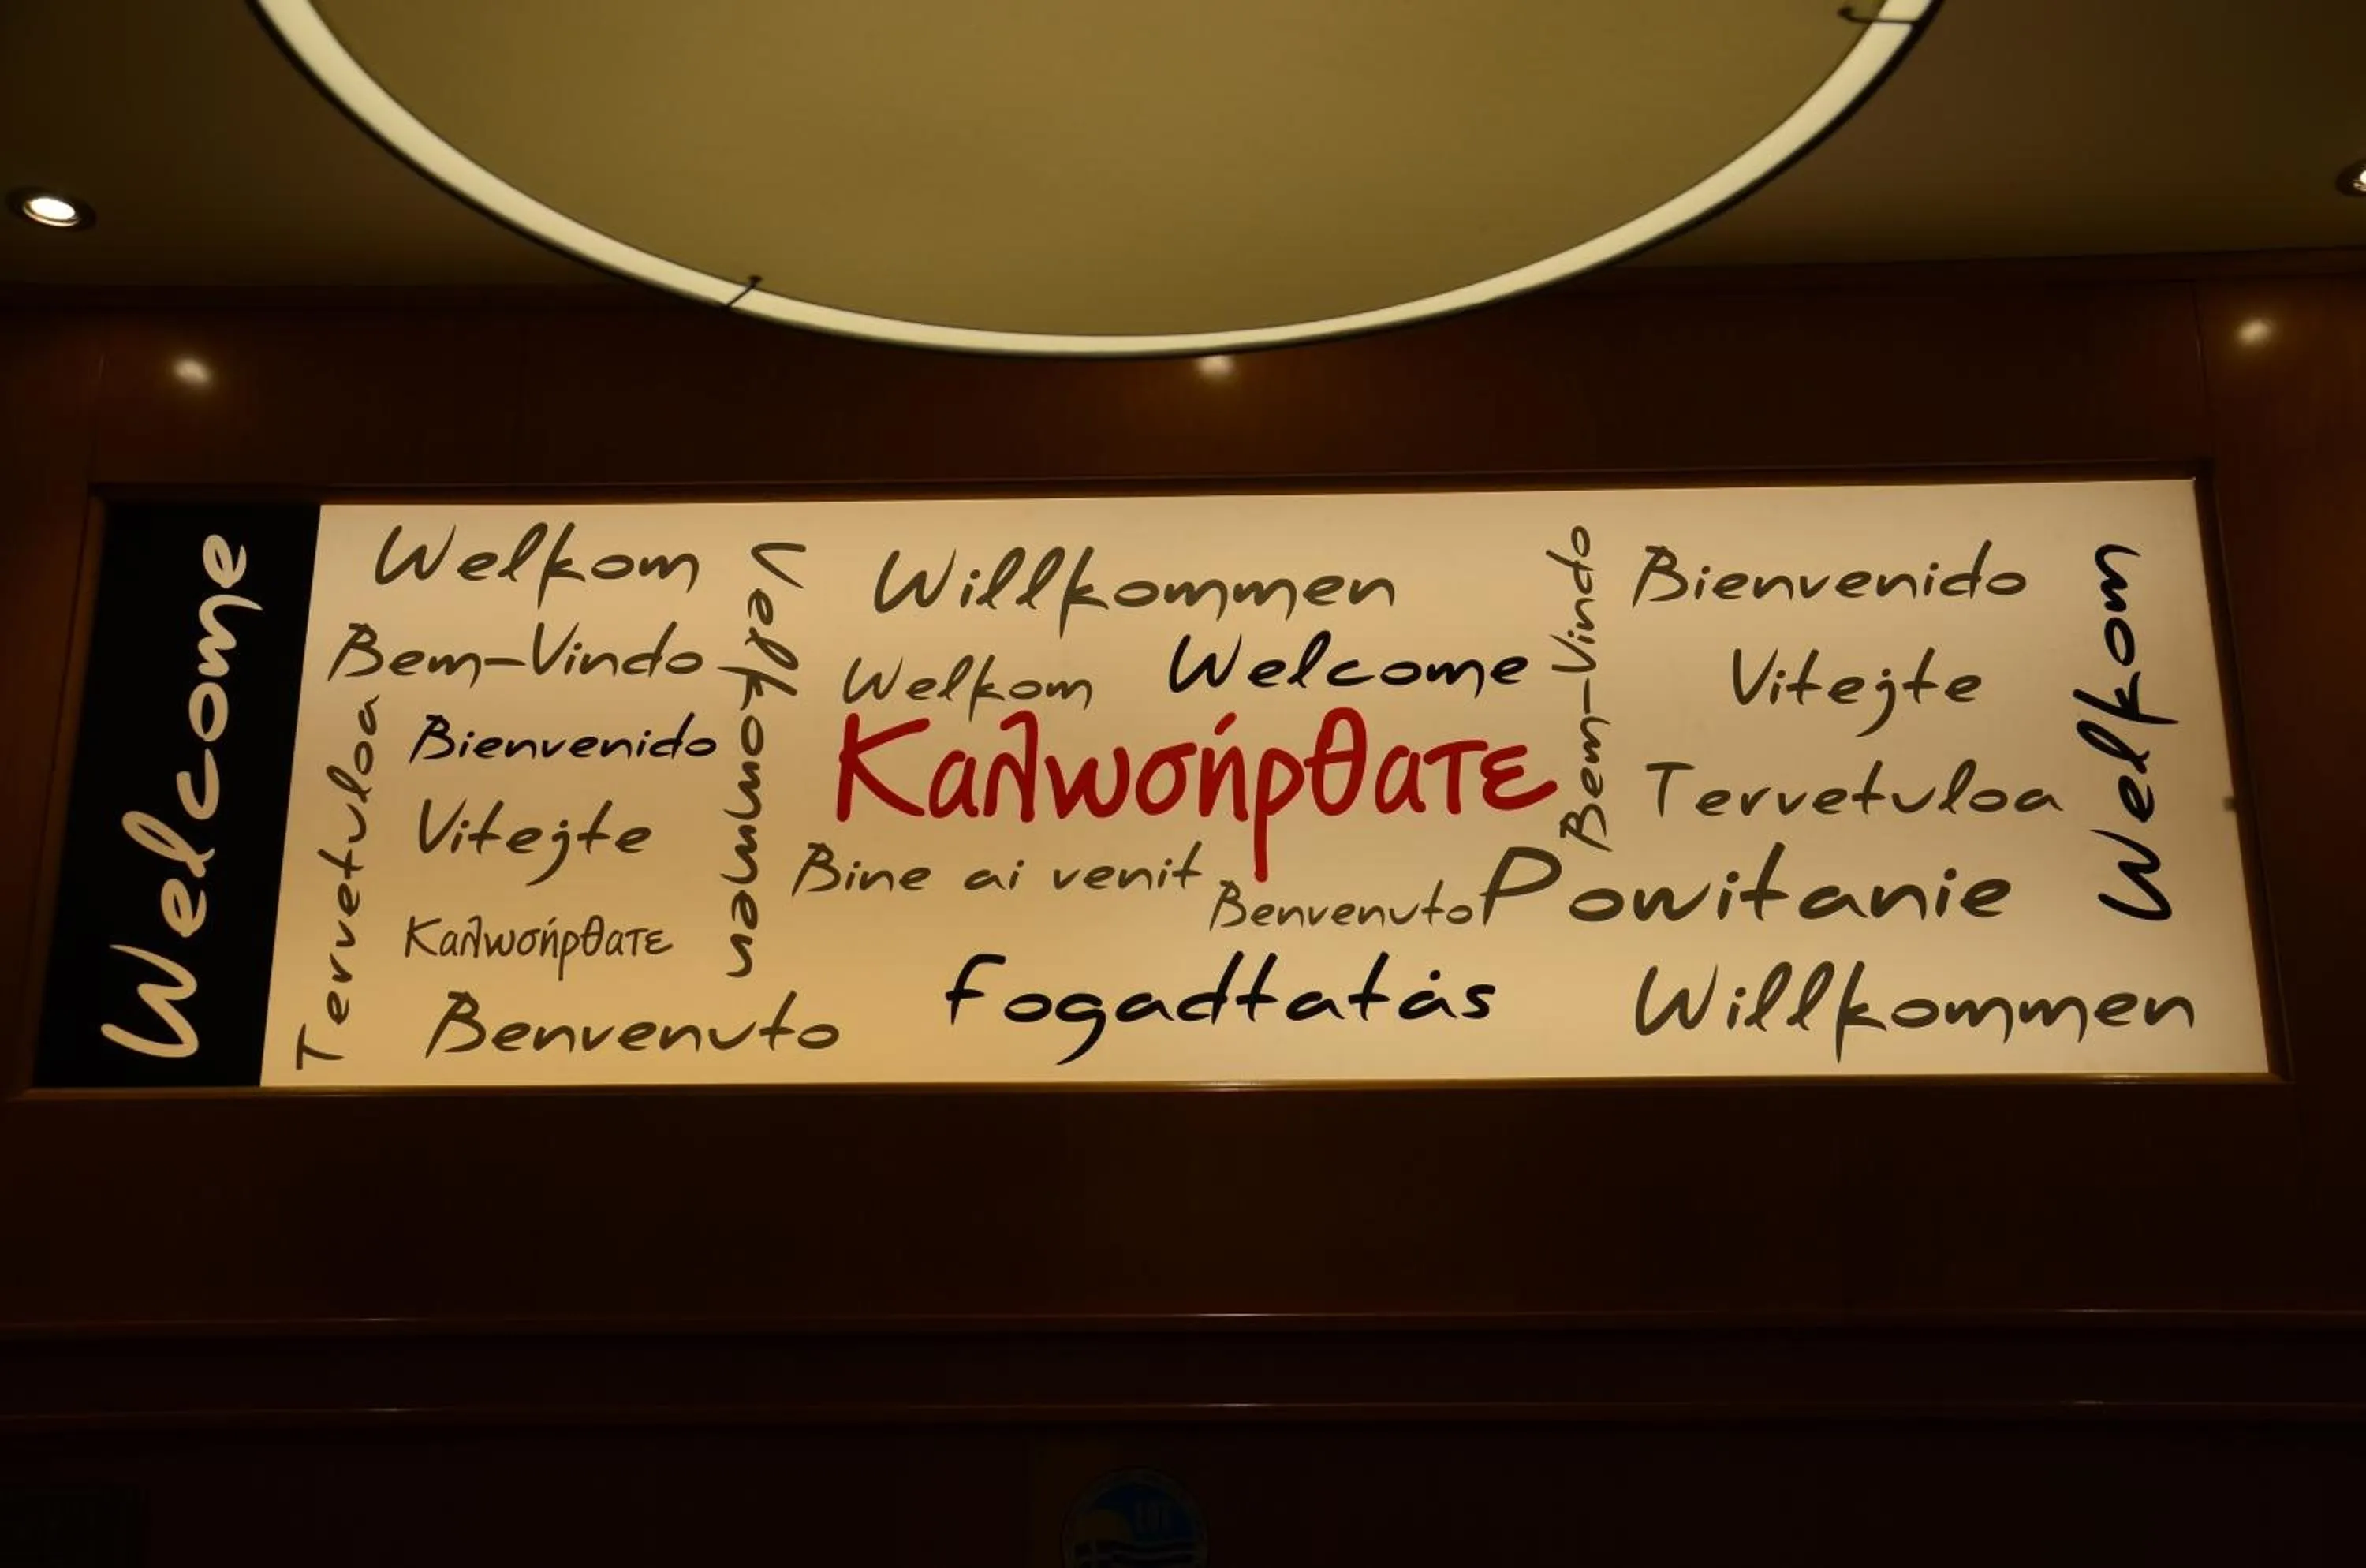 Welcome
Welkom
Bem-Vindo
Tervetuloa
Bienvenido
Vitejte
Καλωσήρθατε
Benvenuto
Velkommen
Willkommen
Welkom
Welcome
Καλωσήρθατε
Bine ai venit
Benvenuto
Fogadtatás
Bem-Vindo
Bienvenido
Vitejte
Tervetuloa
Powitanie
Willkommen
Welkom